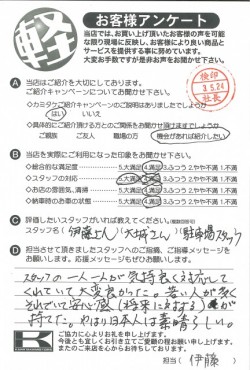 軽
お客様アンケート
当店では、お買い上げ頂いたお客様の声を可能
な限り現場に反映し、お客様により良い商品と
サービスを提供する事に努めています。
大変お手数ですが是非お声をお聞かせ下さい。
検印
3.5.24
社長
A 当店はご紹介を大切にしております。
ご紹介キャンペーンについてお聞かせ下さい
◇カミタケご紹介キャンペーンのご説明はありましたでしょうか
はい いいえ
◇具体的にご紹介頂ける方とのご関係をお聞かせ頂けますでしょうか
ご親族 ご友人 職場の方 機会があれば紹介したい
B 当店を実際ご利用になった印象をお聞かせ下さい
◇総合的な満足度 5.大満足 4.満足 3.ふつう 2.やや不満 1.不満
◇スタッフの対応 5.大満足 4.満足 3.ふつう 2.やや不満 1.不満
◇お店の雰囲気、清掃 5.大満足 4.満足 3.ふつう 2.やや不満 1.不満
◇納車時のお車の状態 5.大満足 4.満足 3.ふつう 2.やや不満 1.不満
C 評価したいスタッフがいれば教えてください。
スタッフ名( 伊藤さん )( 大城さん )( 駐車場スタッフ )
D 担当させて頂きましたスタッフへのご指導、ご指導メッセージを
お願いします。応援メッセージもお願いします。
スタッフの一人一人が気持良く対応して
くれていて大変良かった。若い人が多く
それでいて安心感(将来に対する)が
持てた。やはり日本人は素晴らしい。
K
ご協力に心よりお礼を申し上げます。
今後とも宜しくお引き立てご愛顧の程お願い申し上げます。
またのご来店を心からお待ちしております。
担当( 伊藤 )